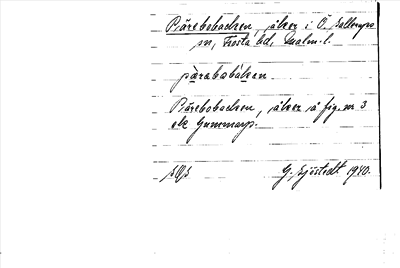 Pärebobacken, åker i Ö. Sallerups
sn, Frosta hd, Malm. l.
pärabobáken
Pärebobacken, åker å fig. nr 3
ek Gummarp.
G. Sjöstedt 1940.